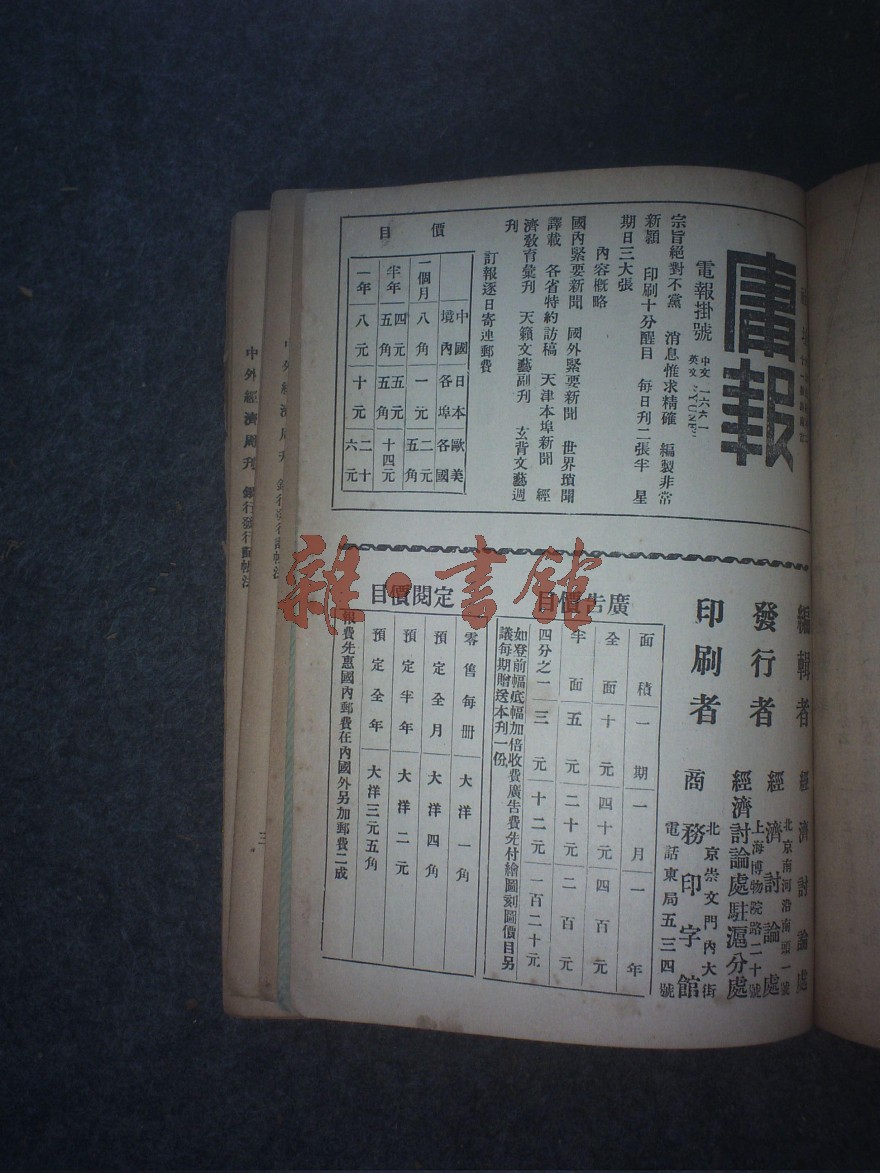 庸報
電報掛號
中文 一六六一
英文 "YUNE"
宗旨絕對不黨 消息惟求精確 編製非常
新穎 印刷十分醒目 每日刊二張半 星
期日三大張
內容概略
國內緊要新聞 國外緊要新聞 世界瑣聞
譯載 各省特約訪稿 天津本埠新聞 經
濟敎育彙刊 天籟文藝副刊 玄背文藝週
刊
訂報逐日寄連郵費
價目
中國境內各埠 日本 歐美各國
一個月 八角 一元 二元五角
半年 四元五角 五元五角 十四元
一年 八元 十元 二十六元
編輯者 經濟討論處
北京南河沿南頭一號
發行者 經濟討論處
上海博物院路二十號
經濟討論處駐滬分處
北京崇文門內大街
印刷者 商務印字館
電話東局五三四號
廣告價目
面積 一期 一月 一年
全面 十元 四十元 四百元
半面 五元 二十元 二百元
四分之一 三元 十二元 一百二十元
如登前幅底幅加倍收費廣告費先付繪圖刻圖價目另
議每期贈送本刊一份
定閱價目
零售每冊 大洋一角
預定全月 大洋四角
預定半年 大洋二元
預定全年 大洋三元五角
報費先惠國內郵費在內國外另加郵費二成
中外經濟周刊 銀行發行
中外經濟周刊 銀行發行
三
雜·書館